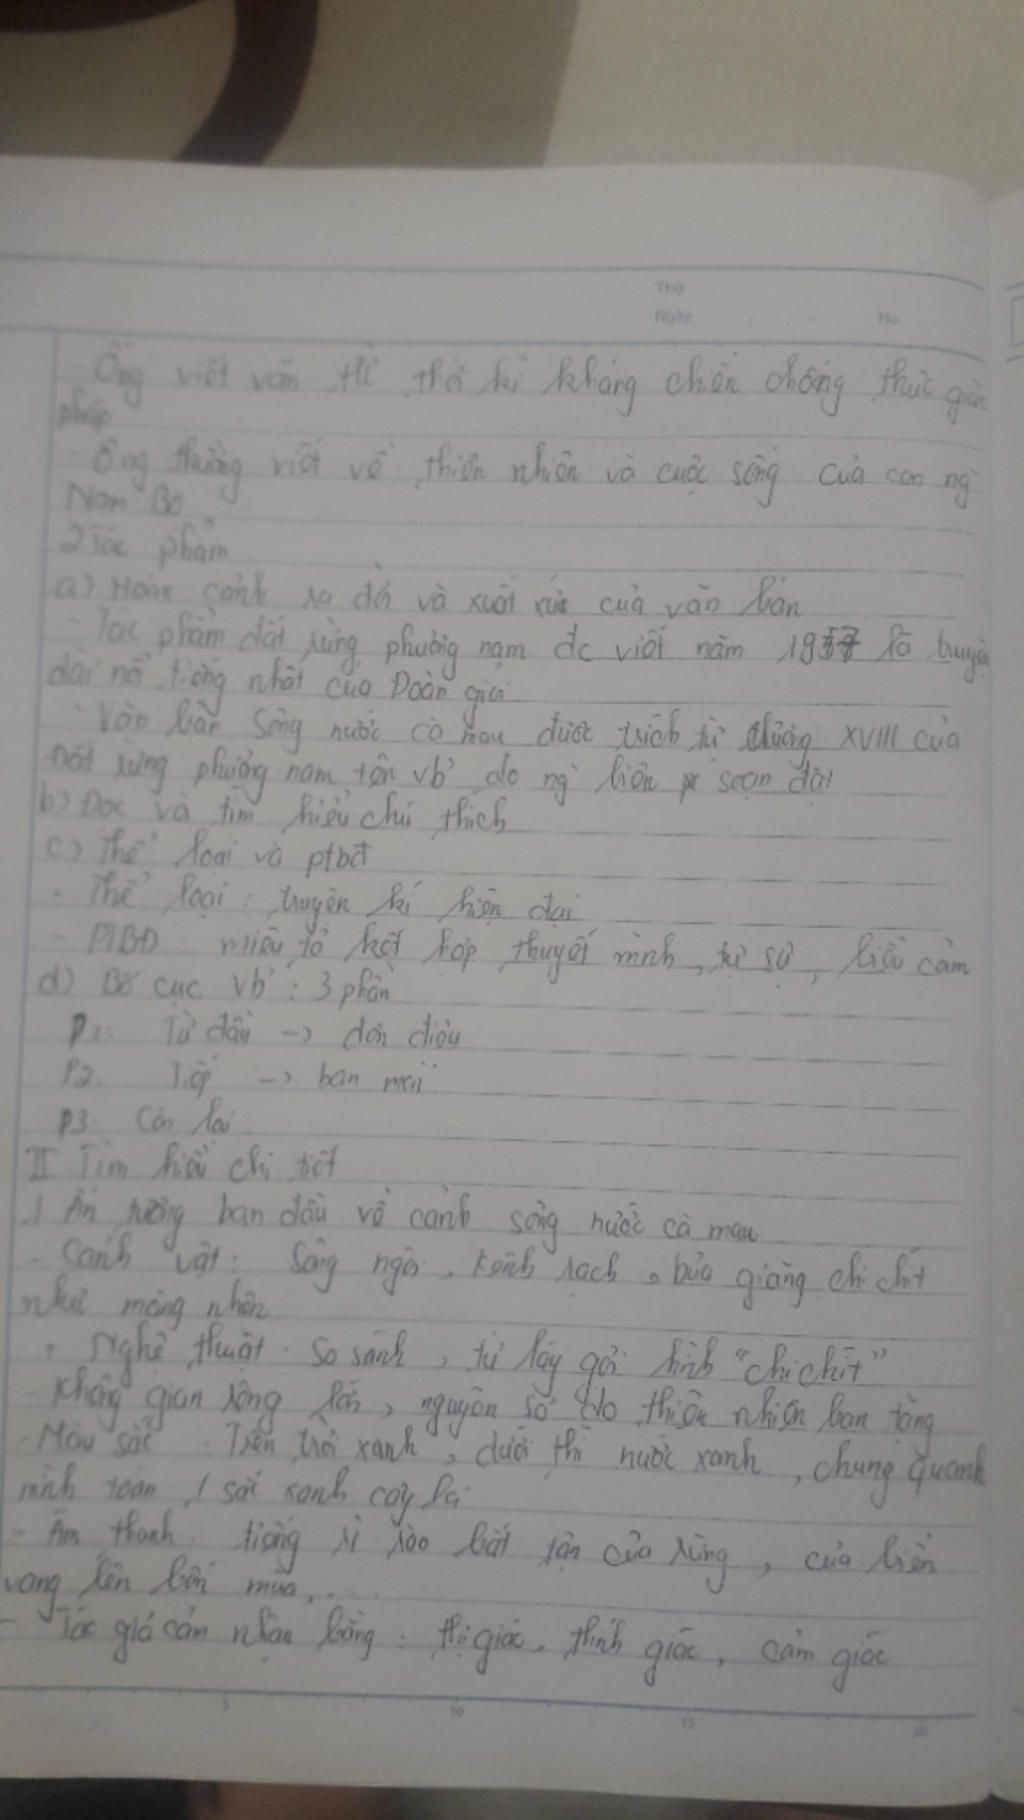 Thứ
Ngày No
- Ông viết văn từ thời kì kháng chiến chống thực dân
pháp
- Ông thường viết về thiên nhiên và cuộc sống của con ng
Nam Bộ
2 Tác phẩm
a) Hoàn cảnh ra đời và xuất xứ của văn bản
- Tác phẩm đất rừng phương nam đc viết năm 1957 là truyện
dài nổi tiếng nhất của Đoàn giỏi
- Văn bản Sông nước cà mau được trích từ chương XVIII của
Đất rừng phương nam tên vb do ng biên soạn đặt
b) Đọc và tìm hiểu chú thích
c) Thể loại và ptbđ
- Thể loại: truyện kí hiện đại
- PTBĐ: miêu tả kết hợp thuyết minh, tự sự, biểu cảm
d) Bố cục vb: 3 phần
P1: Từ đầu -> đơn điệu
P2. Tiếp -> ban mai
P3. Còn lại
II Tìm hiểu chi tiết
1 Ấn tượng ban đầu về cảnh sông nước cà mau
- Cảnh vật: Sông ngòi, kênh rạch, bủa giăng chi chít
như mạng nhện
, Nghệ thuật: So sánh, từ láy gợi hình "chi chít"
- Không gian rộng lớn, nguyên sơ do thiên nhiên ban tặng
- Màu sắc: Trên trời xanh, dưới thì nước xanh, chung quanh
mình toàn 1 sắc xanh cây lá
- Âm thanh: tiếng rì rào bất tận của rừng, của biển
vang lên bốn mùa,...
- Tác giả cảm nhận bằng: thị giác, thính giác, cảm giác
5 10 15 20